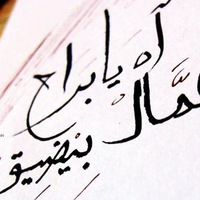 آه يا براح
عمَّال بيضيق